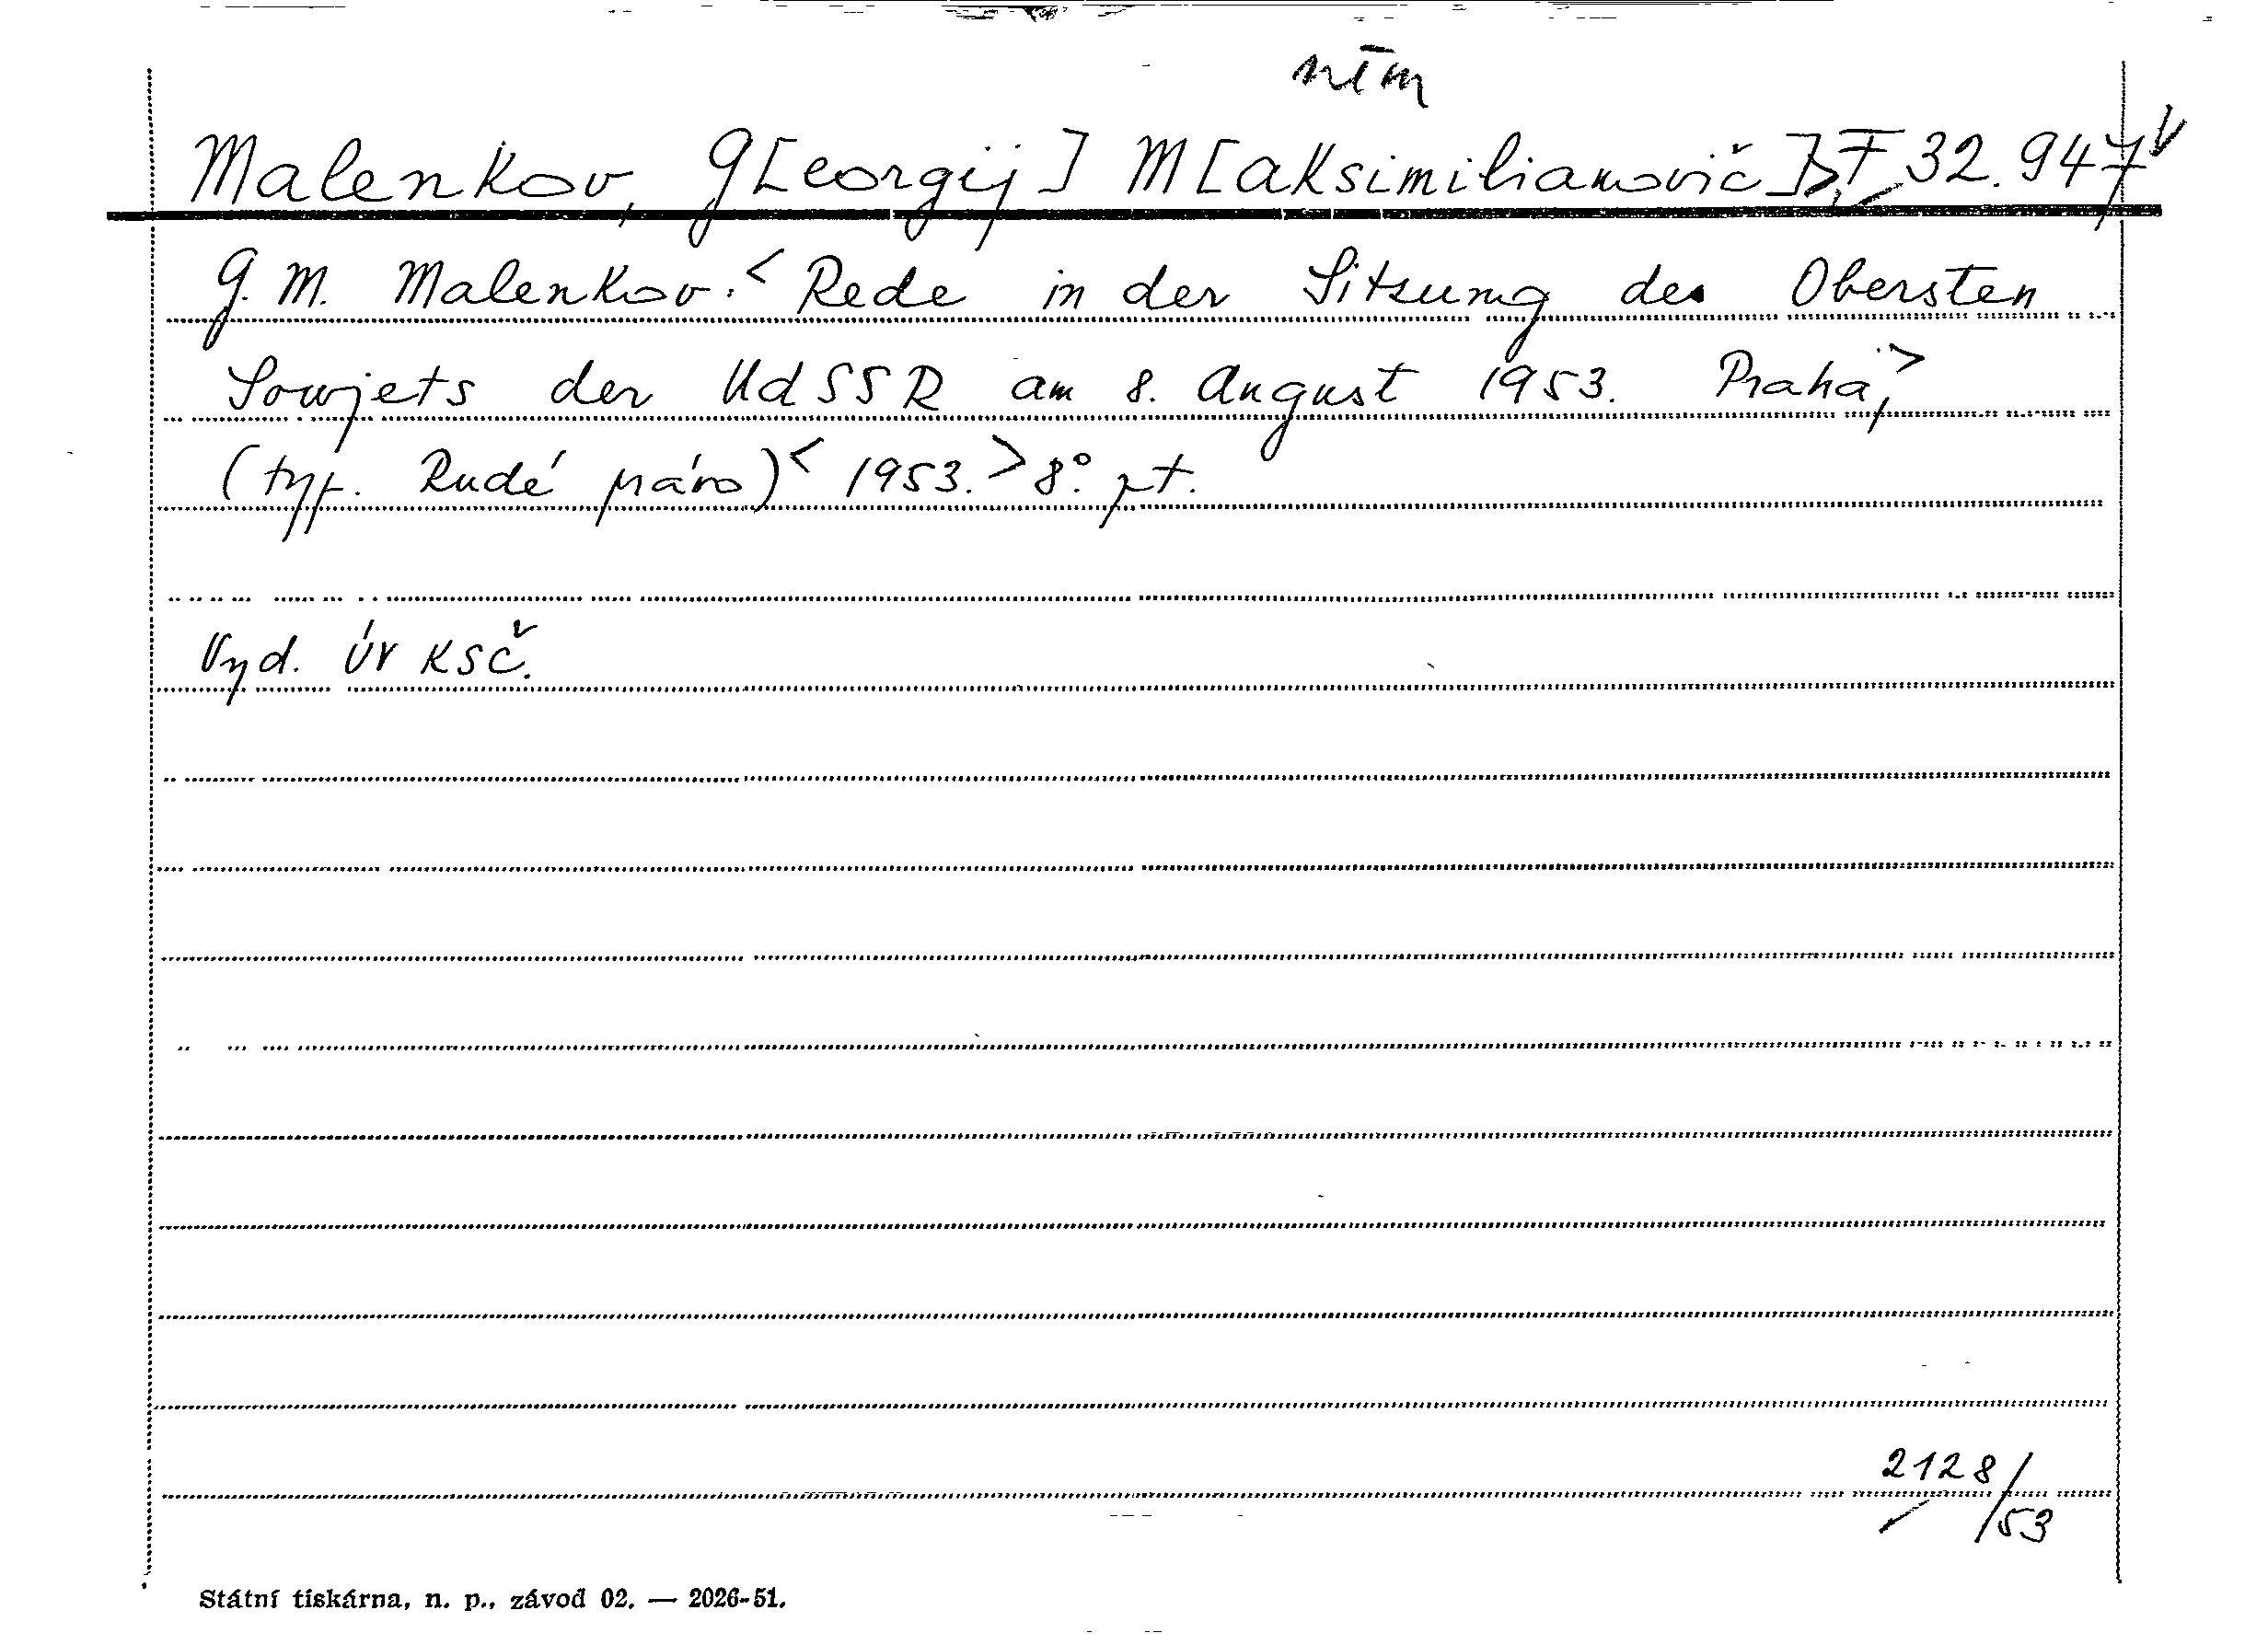 něm
Malenkov, G[eorgij] M[aksimilianovič]> F 32.947
G. M. Malenkov: < Rede in der Sitzung des Obersten
Sowjets der UdSSR am 8. August 1953. Praha,>
(typ. Rudé právo) < 1953. > 8°. pt.
Vyd. ÚV KSČ.
2128/53
Státní tiskárna, n. p., závod 02. — 2026-51.